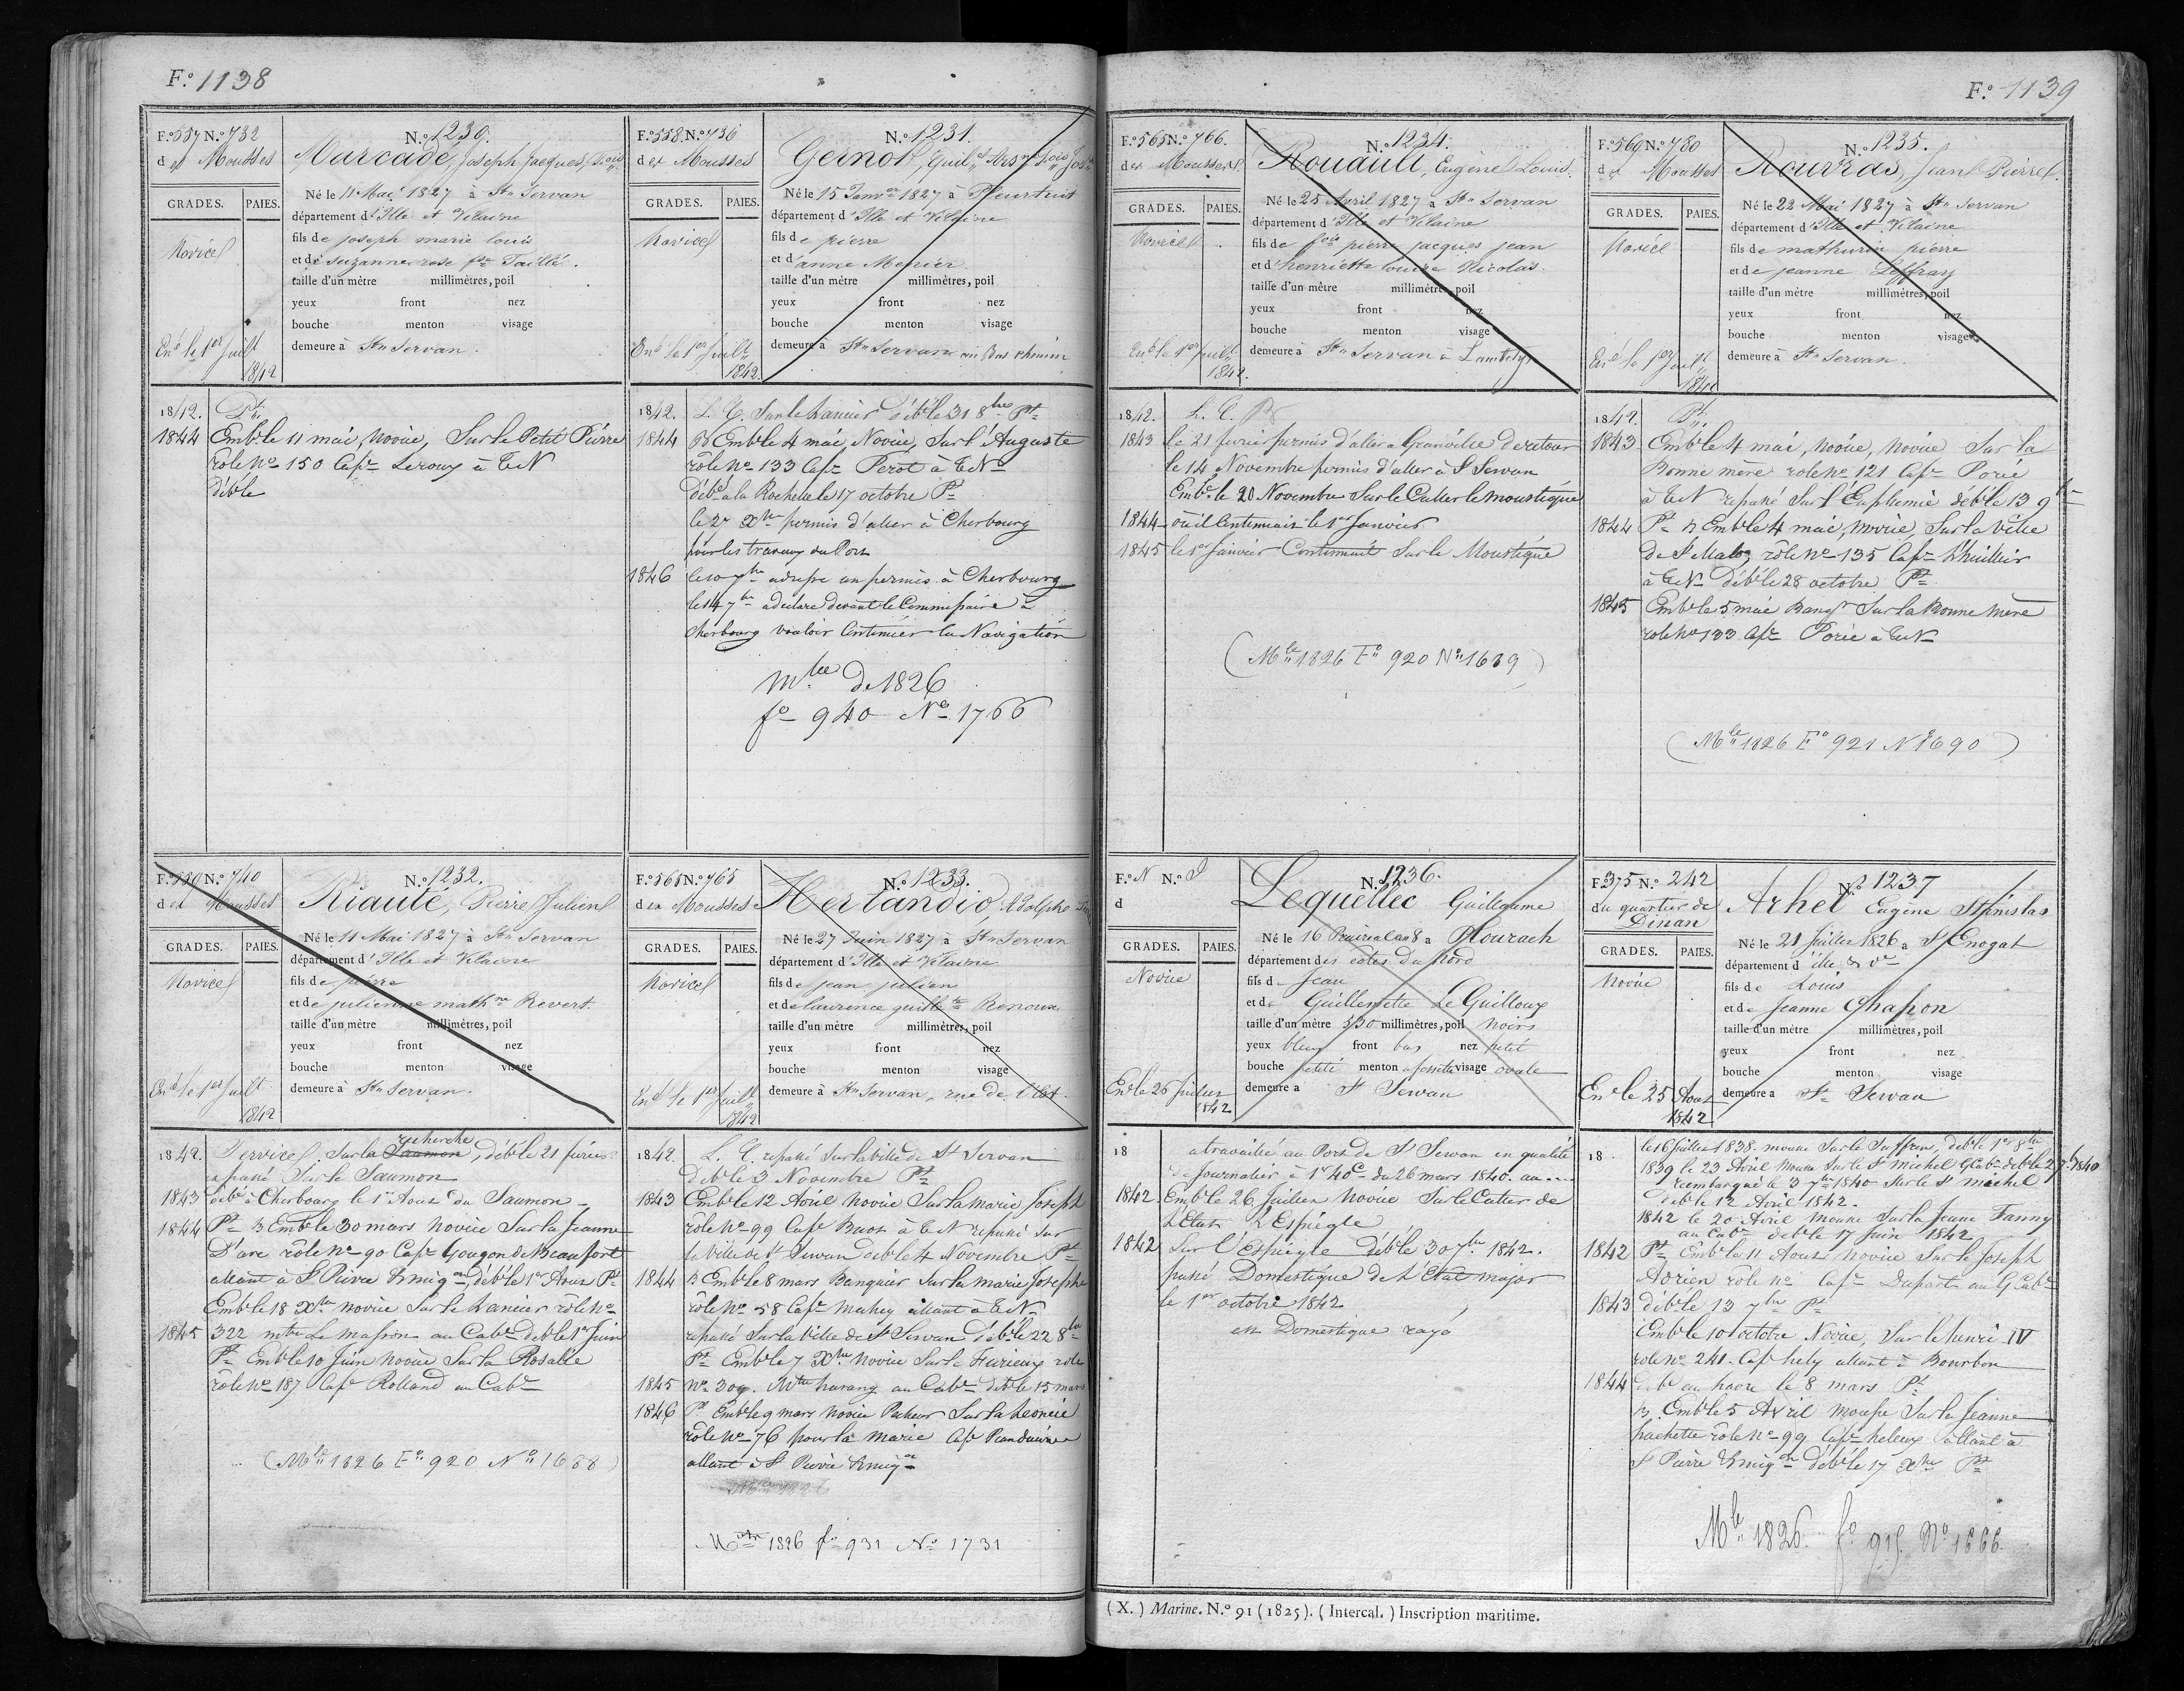 F.o 1138
F.o 557 N.o 732
des Mousses
GRADES. PAIES.
Novice
En.é le 1er Juil.t
1842
N.o 1230.
Marcadé, Joseph Jacques, Louis
Né le 11 Mai 1827 à St. Servan
département d'Ille et Vilaine
fils de joseph marie louis
et de suzanne rose Taillé.
taille d'un mètre millimètres, poil
yeux front nez
bouche menton visage
demeure à St. Servan.
1842. Pt.
1844 Emb.é le 11 mai, Novice, Sur le Petit Pierre
rôle No 150 Cap.e Leroux à T.N
déb.é le
F.o 558 N.o 736
des Mousses
GRADES. PAIES.
Novice
En.é le 1er Juil.t
1842.
N.o 1231.
Gernot, Guil.
Né le 15 Janv.er 1827 à Pleurtuit
département d'Ille et Vilaine
fils de pierre
et d'anne Menier
taille d'un mètre millimètres, poil
yeux front nez
bouche menton visage
demeure à St. Servan au Bas chemin
1842. L. C. Sur le Lancier déb.é le 31 8bre Pt.
1844 Emb.é le 4 mai Novice, Sur l'Auguste
rôle No 133 Cap.e Perot à T.N.
Déb.é à la Rochelle le 17 octobre Pt.
le 27 Xbre permis d'aller à Cherbourg
pour les travaux du Port
1846 le 10 7bre a depose un permis à Cherbourg
le 14 7bre a déclaré devant le Commissaire à
Cherbourg vouloir Continuer la Navigation
Mle De 1826
fo 940 No 1766
F.o 559 N.o 740
des Mousses
GRADES. PAIES.
Novice
En.é le 1er Juil.t
1842
N.o 1232.
Riauté, Pierre Julien
Né le 11 Mai 1827 à St. Servan
département d'Ille et Vilaine
fils de pierre
et de julienne math.ne Revert.
taille d'un mètre millimètres, poil
yeux front nez
bouche menton visage
demeure à St. Servan.
recherche
1842. Service. Sur la Saumon, déb.é le 21 février
repassé Sur le Saumon
1843 déb.é à Cherbourg le 1er Aout du Saumon
1844 Pt. Emb.é le 30 mars Novice Sur la Jeanne
D'arc rôle No 90 Cap.e Gougon de Beaufort
allant à St Pierre Miq.on déb.é le 1er Aout Pt.
Emb.é le 18 Xbre novice Sur le Lancier rôle No
1845 322 mtre Le Masson au Cab.e deb.é le 1er Juin
Pt. Emb.é le 10 Juin novice Sur la Rosalie
rôle No 187 Cap.e Rolland au Cab.e
(Mle 1826 F.o 920 No 1688)
F.o 565 N.o 765
des Mousses
GRADES. PAIES.
Novice
En.é le 1er Juil.t
1842
N.o 1233.
Herlandio, Adolphe
Né le 27 Juin 1827 à St. Servan
département d'Ille et Vilaine
fils de jean julien
et de laurence guill.te Renoux
taille d'un mètre millimètres, poil
yeux front nez
bouche menton visage
demeure à St. Servan, rue de l'Est.
1842. L. C. repassé Sur la ville de St Servan
Déb.é le 3 Novembre Pt.
1843 Emb.é le 12 Avril Novice Sur la marie Joseph
rôle No 99 Cap.e Buot à T.N repassé sur
la Ville de St Servan deb.é le 4 Novembre Pt.
1844 Emb.é le 8 mars Banquier Sur la marie Josephe
rôle No 58 Cap.e Mahey allant à T.N.
repassé Sur la Ville de St Servan déb.é le 22 8bre
Pt. Emb.é le 7 Xbre novice Sur le Furieux role
1845 No 309. Mtre harang au Cab.e déb.é le 15 mars
1846 Pt. Emb.é le 9 mars Novice Pecheur Sur la Leoncie
rôle No 76 pour la Marie Cap.e
allant à St Pierre Miq.on
Mle 1826
Mle 1826 fo 931 No 1731
F.o 1139
F.o 565 N.o 766.
des Mousses
GRADES. PAIES.
Novice
En.é le 1er Juil.t
1842.
N.o 1234.
Rouault, Eugène Louis.
Né le 25 Avril 1827 à St. Servan
département d'Ille et Vilaine
fils de pierre jacques jean
et d'henriette louise Nicolas.
taille d'un mètre millimètres, poil
yeux front nez
bouche menton visage
demeure à St. Servan à Lambety
1842. L. C. Pt.
1843 le 21 fevrier permis d'aller a Granville De retour
le 14 Novembre permis d'aller à St Servan
Emb.é le 20 Novembre Sur le Cutter le moustique
1844 où il Continuait le 1er Janvier
1845 le 1er Janvier Continuait Sur le Moustique
(Mle 1826 F.o 920 No 1689)
F.o 569 N.o 780
des Mousses
GRADES. PAIES.
Novice
En.é le 1er Juil.t
1842
N.o 1235.
Rouvras, Jean Pierre.
Né le 22 Mai 1827 à St. Servan
département d'Ille et Vilaine
fils de mathurin pierre
et de jeanne Leffray
taille d'un mètre millimètres, poil
yeux front nez
bouche menton visage
demeure à St. Servan.
1842. Pt.
1843 Emb.é le 4 mai, novice, novice Sur la
Bonne mère role No 121 Cap.e Porié
à T.N repassé Sur l'Euphemie déb.é le 13 9bre
1844 Pt. Emb.é le 4 mai, Novice, Sur la Ville
de St Malo, rôle No 135 Cap.e Lhuillier
à T.N. Déb.é le 28 octobre Pt.
1845 Emb.é le 5 mai Banq.r Sur la Bonne Mère
role No 133 Cap.e Porié à T.N.
(Mle 1826 F.o 921 No 1690)
F.o N N.o 1
d
GRADES. PAIES.
Novice
En.é le 26 Juillet
1842
N.o 1236.
Lequellec Guillaume
Né le 16 Prairial an 8 à Plourach
département des côtes du Nord
fils de Jean
et de Guillemette Le Guilloux
taille d'un mètre 530 millimètres, poil noirs
yeux bleus front bas nez petit
bouche petite menton à fossette visage ovale
demeure à St Servan
18 a travaillé au Port de St Servan en qualité
de Journalier à 1f 40c du 26 mars 1840. au ....
1842. Emb.é le 26 Juillet Novice Sur le Cutter de
L'Etat L'Espiègle
1842 Sur l'Espiègle Déb.é le 30 7bre 1842.
passé Domestique de L'Etat major
le 1er octobre 1842
en Domestique rayé
F.o 375 N.o 242
du quartier de
Dinan
GRADES. PAIES.
Novice
En.é le 25 Aout
1842
N.o 1237
Arhel Eugène Stanislas
Né le 21 Juillet 1826 à St Enogat
département d'ille & Ve
fils de Louis
et de Jeanne Chapon
taille d'un mètre millimètres, poil
yeux front nez
bouche menton visage
demeure à St. Servan
18. le 16 Juillet 1838. mousse Sur le Suffren, deb.é le 1er 8bre
1839 le 23 Avril Mousse Sur le St Michel G. Cab.e deb.é le 2 7bre 1840
reembarqué le 3 7bre 1840 Sur le St michel
deb.é le 12 Avril 1842.
1842 le 20 Avril Mousse Sur la Jeune Fanny
au Cab.e deb.é le 17 Juin 1842
1842 Pt. Emb.é le 11 Aout Novice Sur le Joseph
Adrien rôle No Cap.e Dupart au G. Cab.e
1843 déb.é le 13 7bre Pt.
Emb.é le 10 octobre Novice, Sur le henri IV
role No 241. Cap.e hely allant à Bourbon
1844 deb.é au havre le 8 mars Pt.
Emb.é le 5 Avril Mousse Sur la Jeanne
hachette rôle No 99 Cap.e heleux allant à
St Pierre Miq.on déb.é le 17 Xbre Pt.
Mle 1826. fo 915 No 1666.
(X.) Marine. N.o 91 (1825). (Intercal.) Inscription maritime.